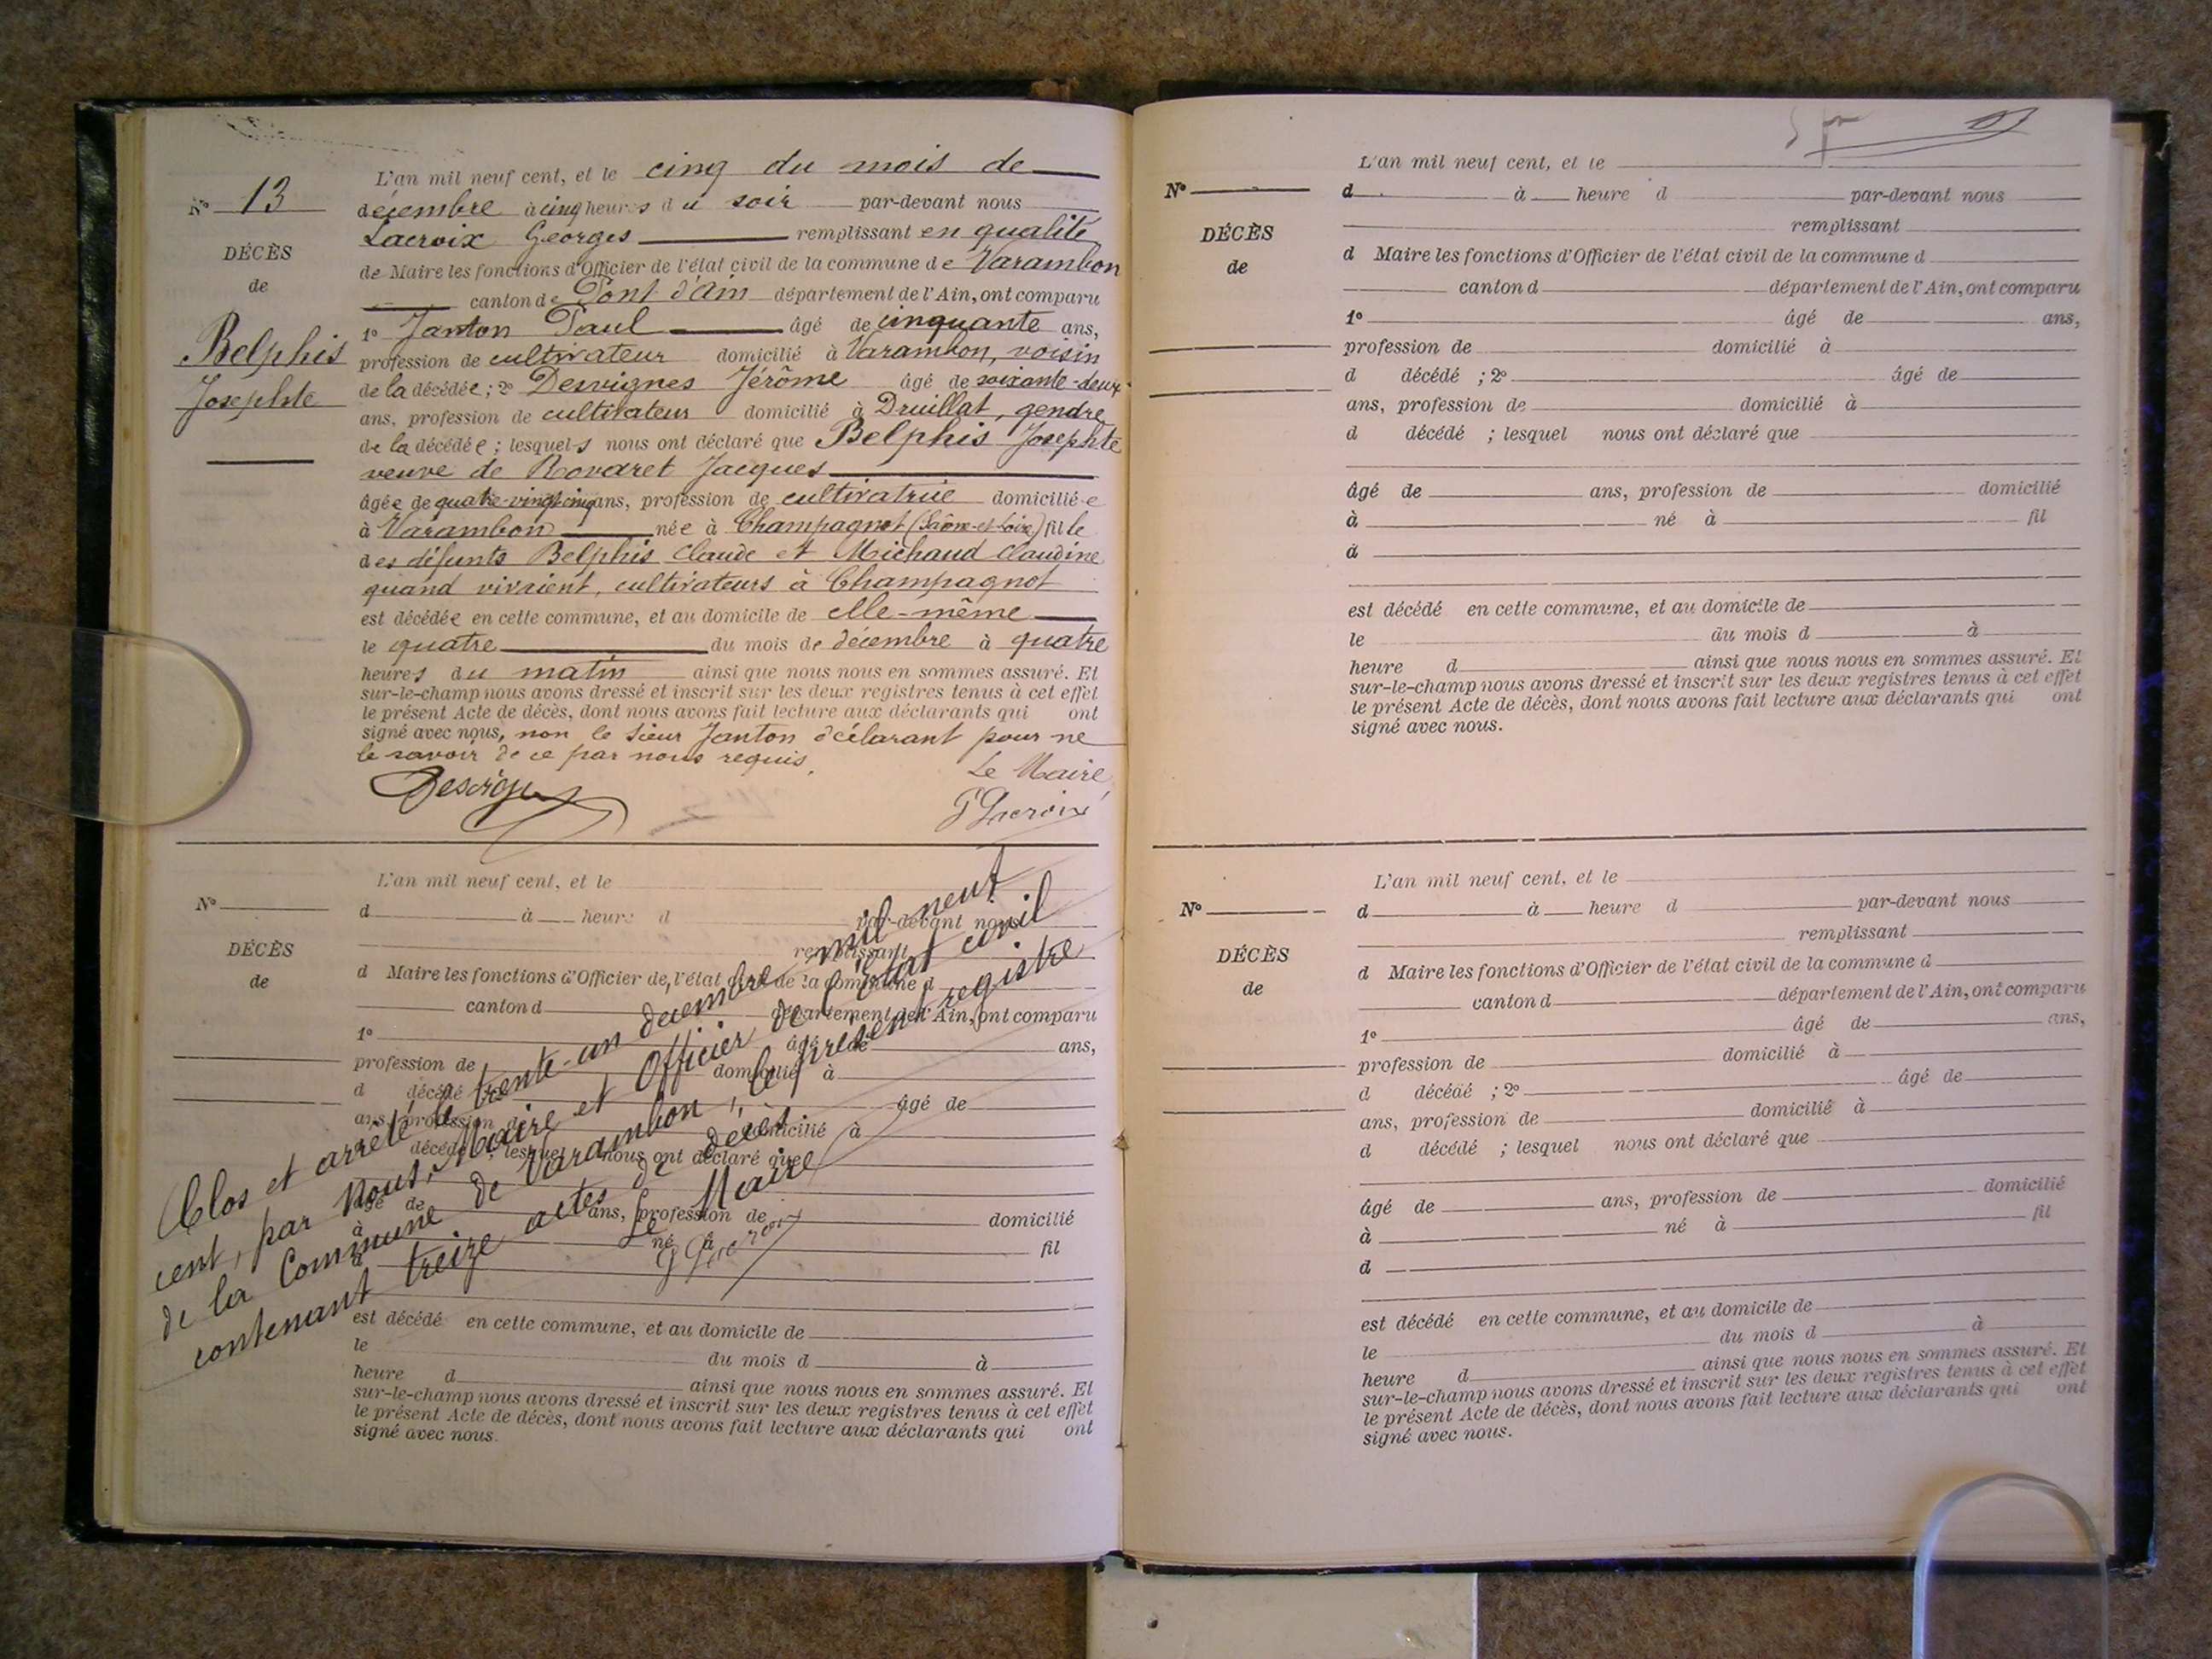 N° 13
DÉCÈS
de
Belphis
Josephte
L'an mil neuf cent, et le cinq du mois de
décembre à cinq heures du soir par-devant nous
Lacroix Georges remplissant en qualité
de Maire les fonctions d'Officier de l'état civil de la commune de Varambon
canton de Pont d'Ain département de l'Ain, ont comparu
1° Janton Paul âgé de cinquante ans,
profession de cultivateur domicilié à Varambon, voisin
de la décédée ; 2° Desvignes Jérôme âgé de soixante-deux
ans, profession de cultivateur domicilié à Druillat, gendre
de la décédée ; lesquels nous ont déclaré que Belphis Josephte
veuve de Rovaret Jacques
âgée de quatre-vingt-cinq ans, profession de cultivatrice domiciliée
à Varambon née à Champagnat (Saône-et-Loire) fille
des défunts Belphis Claude et Michaud Claudine
quand vivaient, cultivateurs à Champagnat
est décédée en cette commune, et au domicile de elle-même
le quatre du mois de décembre à quatre
heures du matin ainsi que nous nous en sommes assuré. Et
sur-le-champ nous avons dressé et inscrit sur les deux registres tenus à cet effet
le présent Acte de décès, dont nous avons fait lecture aux déclarants qui ont
signé avec nous, non le sieur Janton déclarant pour ne
le savoir de ce par nous requis.
Le Maire
Desvignes
G Lacroix
N°
DÉCÈS
de
L'an mil neuf cent, et le
d à heure d par-devant nous
remplissant
d Maire les fonctions d'Officier de l'état civil de la commune d
canton d département de l'Ain, ont comparu
1° âgé de ans,
profession de domicilié à
d décédé âgé de
ans, profession de domicilié à
décédé ; lesquel nous ont déclaré que
âgé de ans, profession de domicilié
à né à fil
d
est décédé en cette commune, et au domicile de
le du mois d à
heure d ainsi que nous nous en sommes assuré. Et
sur-le-champ nous avons dressé et inscrit sur les deux registres tenus à cet effet
le présent Acte de décès, dont nous avons fait lecture aux déclarants qui ont
signé avec nous.
Clos et arrêté le trente-un décembre mil neuf
cent, par Nous, Maire et Officier de l'état civil
de la Commune de Varambon, le présent registre
contenant treize actes de décès.
Le Maire
G Lacroix
N°
DÉCÈS
de
L'an mil neuf cent, et le
d à heure d par-devant nous
remplissant
d Maire les fonctions d'Officier de l'état civil de la commune d
canton d département de l'Ain, ont comparu
1° âgé de ans,
profession de domicilié à
d décédé ; 2° âgé de
ans, profession de domicilié à
d décédé ; lesquel nous ont déclaré que
âgé de ans, profession de domicilié
à né à fil
d
est décédé en cette commune, et au domicile de
le du mois d à
heure d ainsi que nous nous en sommes assuré. Et
sur-le-champ nous avons dressé et inscrit sur les deux registres tenus à cet effet
le présent Acte de décès, dont nous avons fait lecture aux déclarants qui ont
signé avec nous.
N°
DÉCÈS
de
L'an mil neuf cent, et le
d à heure d par-devant nous
remplissant
d Maire les fonctions d'Officier de l'état civil de la commune d
canton d département de l'Ain, ont comparu
1° âgé de ans,
profession de domicilié à
d décédé ; 2° âgé de
ans, profession de domicilié à
d décédé ; lesquel nous ont déclaré que
âgé de ans, profession de domicilié
à né à fil
d
est décédé en cette commune, et au domicile de
le du mois d à
heure d ainsi que nous nous en sommes assuré. Et
sur-le-champ nous avons dressé et inscrit sur les deux registres tenus à cet effet
le présent Acte de décès, dont nous avons fait lecture aux déclarants qui ont
signé avec nous.